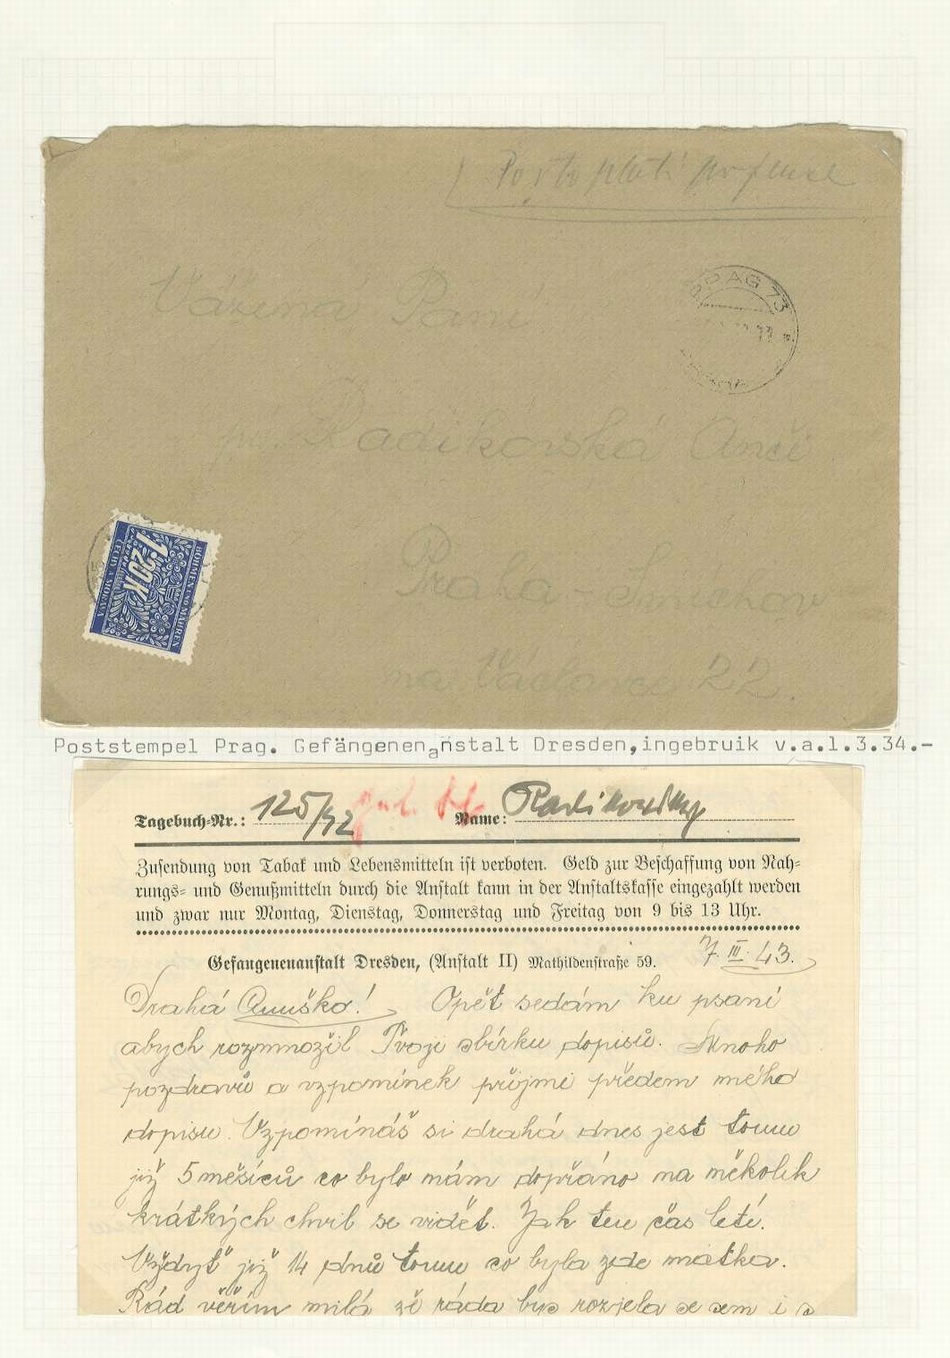 Porto platí příjemce
Vážená Paní
PRAG 73
pí. Radikovská Anči
Praha - Smíchov
na Václavce 22.
BÖHMEN UND MÄHREN
1·20 K
ČECHY A MORAVA
Poststempel Prag. Gefängenenanstalt Dresden,ingebruik v.a.1.3.34.-
Tagebuch-Nr.: 125/42 Name: Radikovsky
Zusendung von Tabak und Lebensmitteln ist verboten. Geld zur Beschaffung von Nah-
rungs- und Genußmitteln durch die Anstalt kann in der Anstaltskasse eingezahlt werden
und zwar nur Montag, Dienstag, Donnerstag und Freitag von 9 bis 13 Uhr.
Gefangenenanstalt Dresden, (Anstalt II) Mathildenstraße 59. 7. III. 43.
Drahá Anuško! Opět sedám ku psaní
abych rozmnožil Tvoji sbírku dopisů. Mnoho
pozdravů a vzpomínek přijmi předem mého
dopisu. Vzpomínáš si drahá dnes jest tomu
již 5 měsíců co bylo nám dopřáno na několik
krátkých chvil se vidět. Jak ten čas letí.
Vždyť již 14 dnů tomu co byla zde matka.
Rád věřím milá že ráda bys rozjela se sem i s